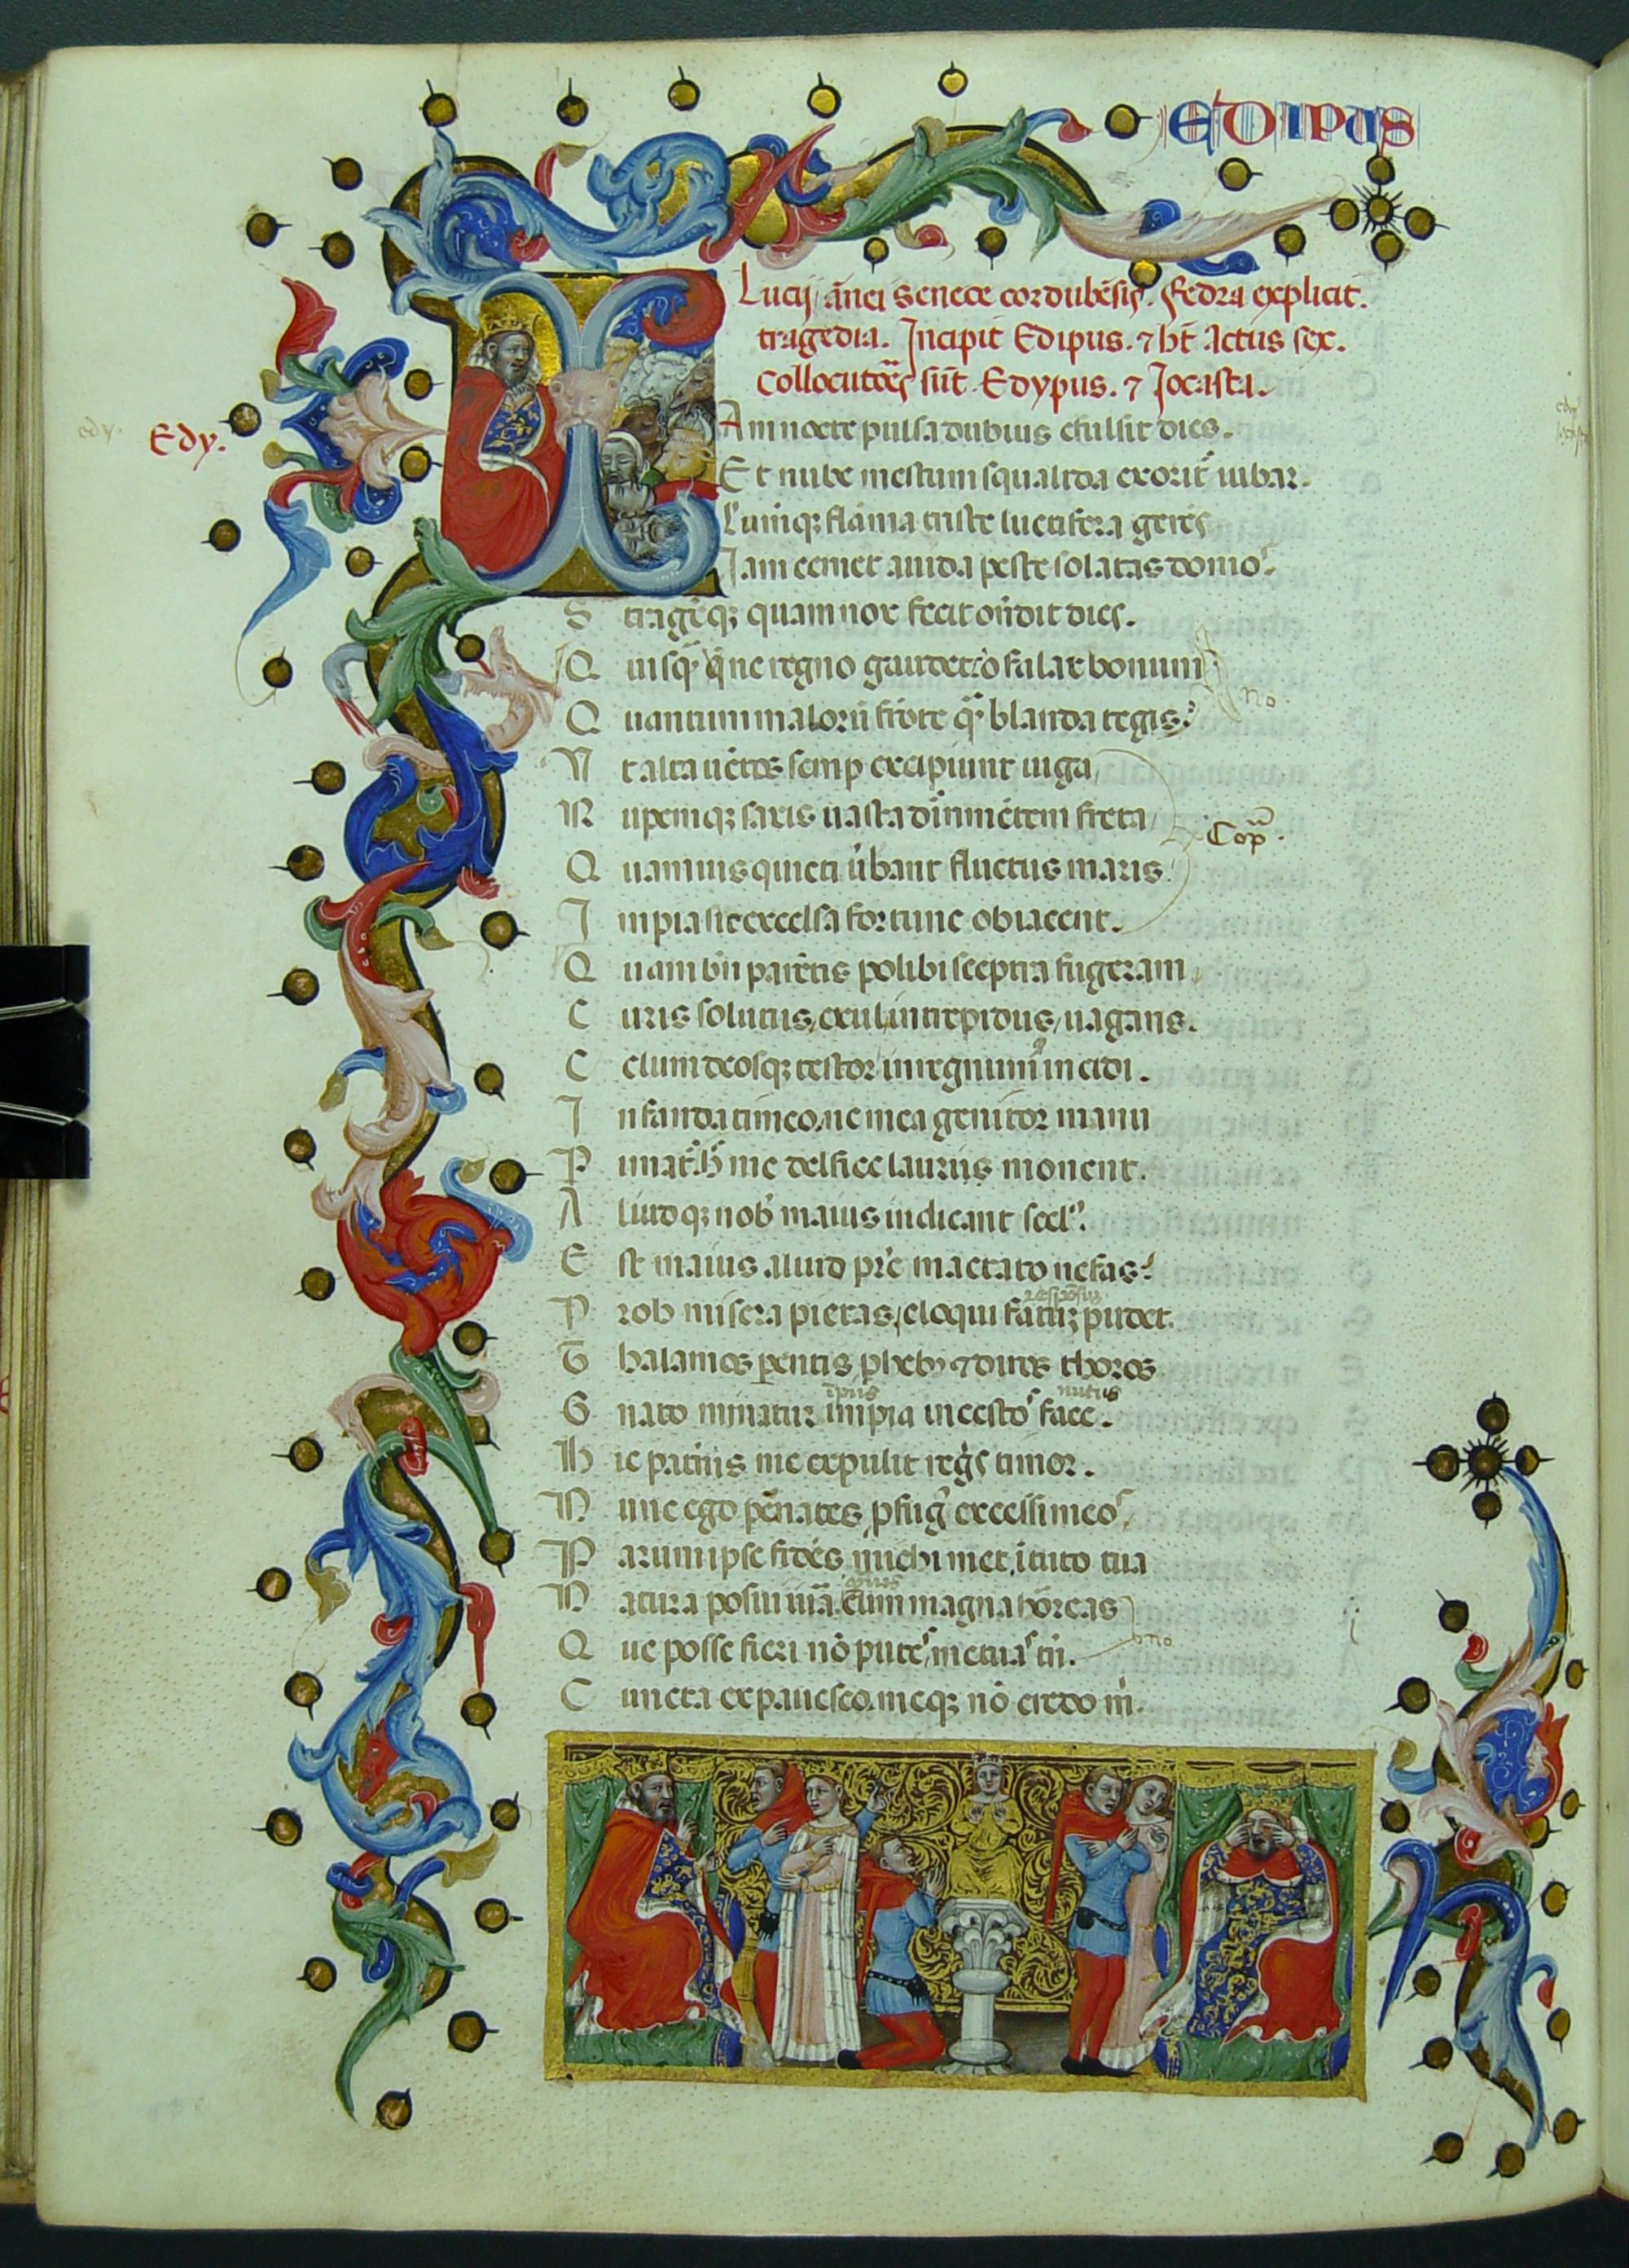 EDIPUS
Lucij ānei Senece cordubēsis. Fedra explicit.
tragedia. Incipit Edipus. ⁊ ht̄ Actus sex.
Collocutoēs sūt. Edypus. ⁊ Jocasta.
Edy.
IAm nocte pulsa dubius effulsit dies.
Et nube mestum squalida exorit᷑ iubar.
Lumiq; flāma triste luctifera gerēs
Jam cernet auida peste solatas domos.
Stragēq; quam nox fecit ōndit dies.
Quisq̄ꝫ ne regno gaudet: o falax bonum
no.
Quantum malorū frōte q̄ꝫ blanda tegis?
Vt alta uētos semp excipiunt iuga
Rupemq; saxis uasta dirimētem freta
Cop̄.
Quamuis quieti ūbant fluctus maris.
Impia sic excelsa fortune obiacent.
Quam bn̄ parētis polibi sceptra fugeram
Curis solutus, exul, intrepidus, uagans.
Celum deosq; testor in regnum incidi.
Infanda timeo, ne mea genitor manu
Pimat᷑. h̄ me delfice laurus monent.
Aliudq; nob̄ maius indicant scel᷒.
Est maius aliud pr̄e mactato nefas?
Prob misera pietas, eloqui fatuꝫ pudet.
Thalamos pentis phebꝰ ⁊ diros thoros
Gnato minatur impia incestos face.
Hic patrius me expulit regīs timor.
Nunc ego penates pfug᷒ excessi meos
Parum ipse fidēs michimet, ī tuto tua
Natura posui iura. cum magna horreas
no
Que posse fieri nō putes, metuas tn̄.
Cuncta expauesco, meq; nō credo m̄.